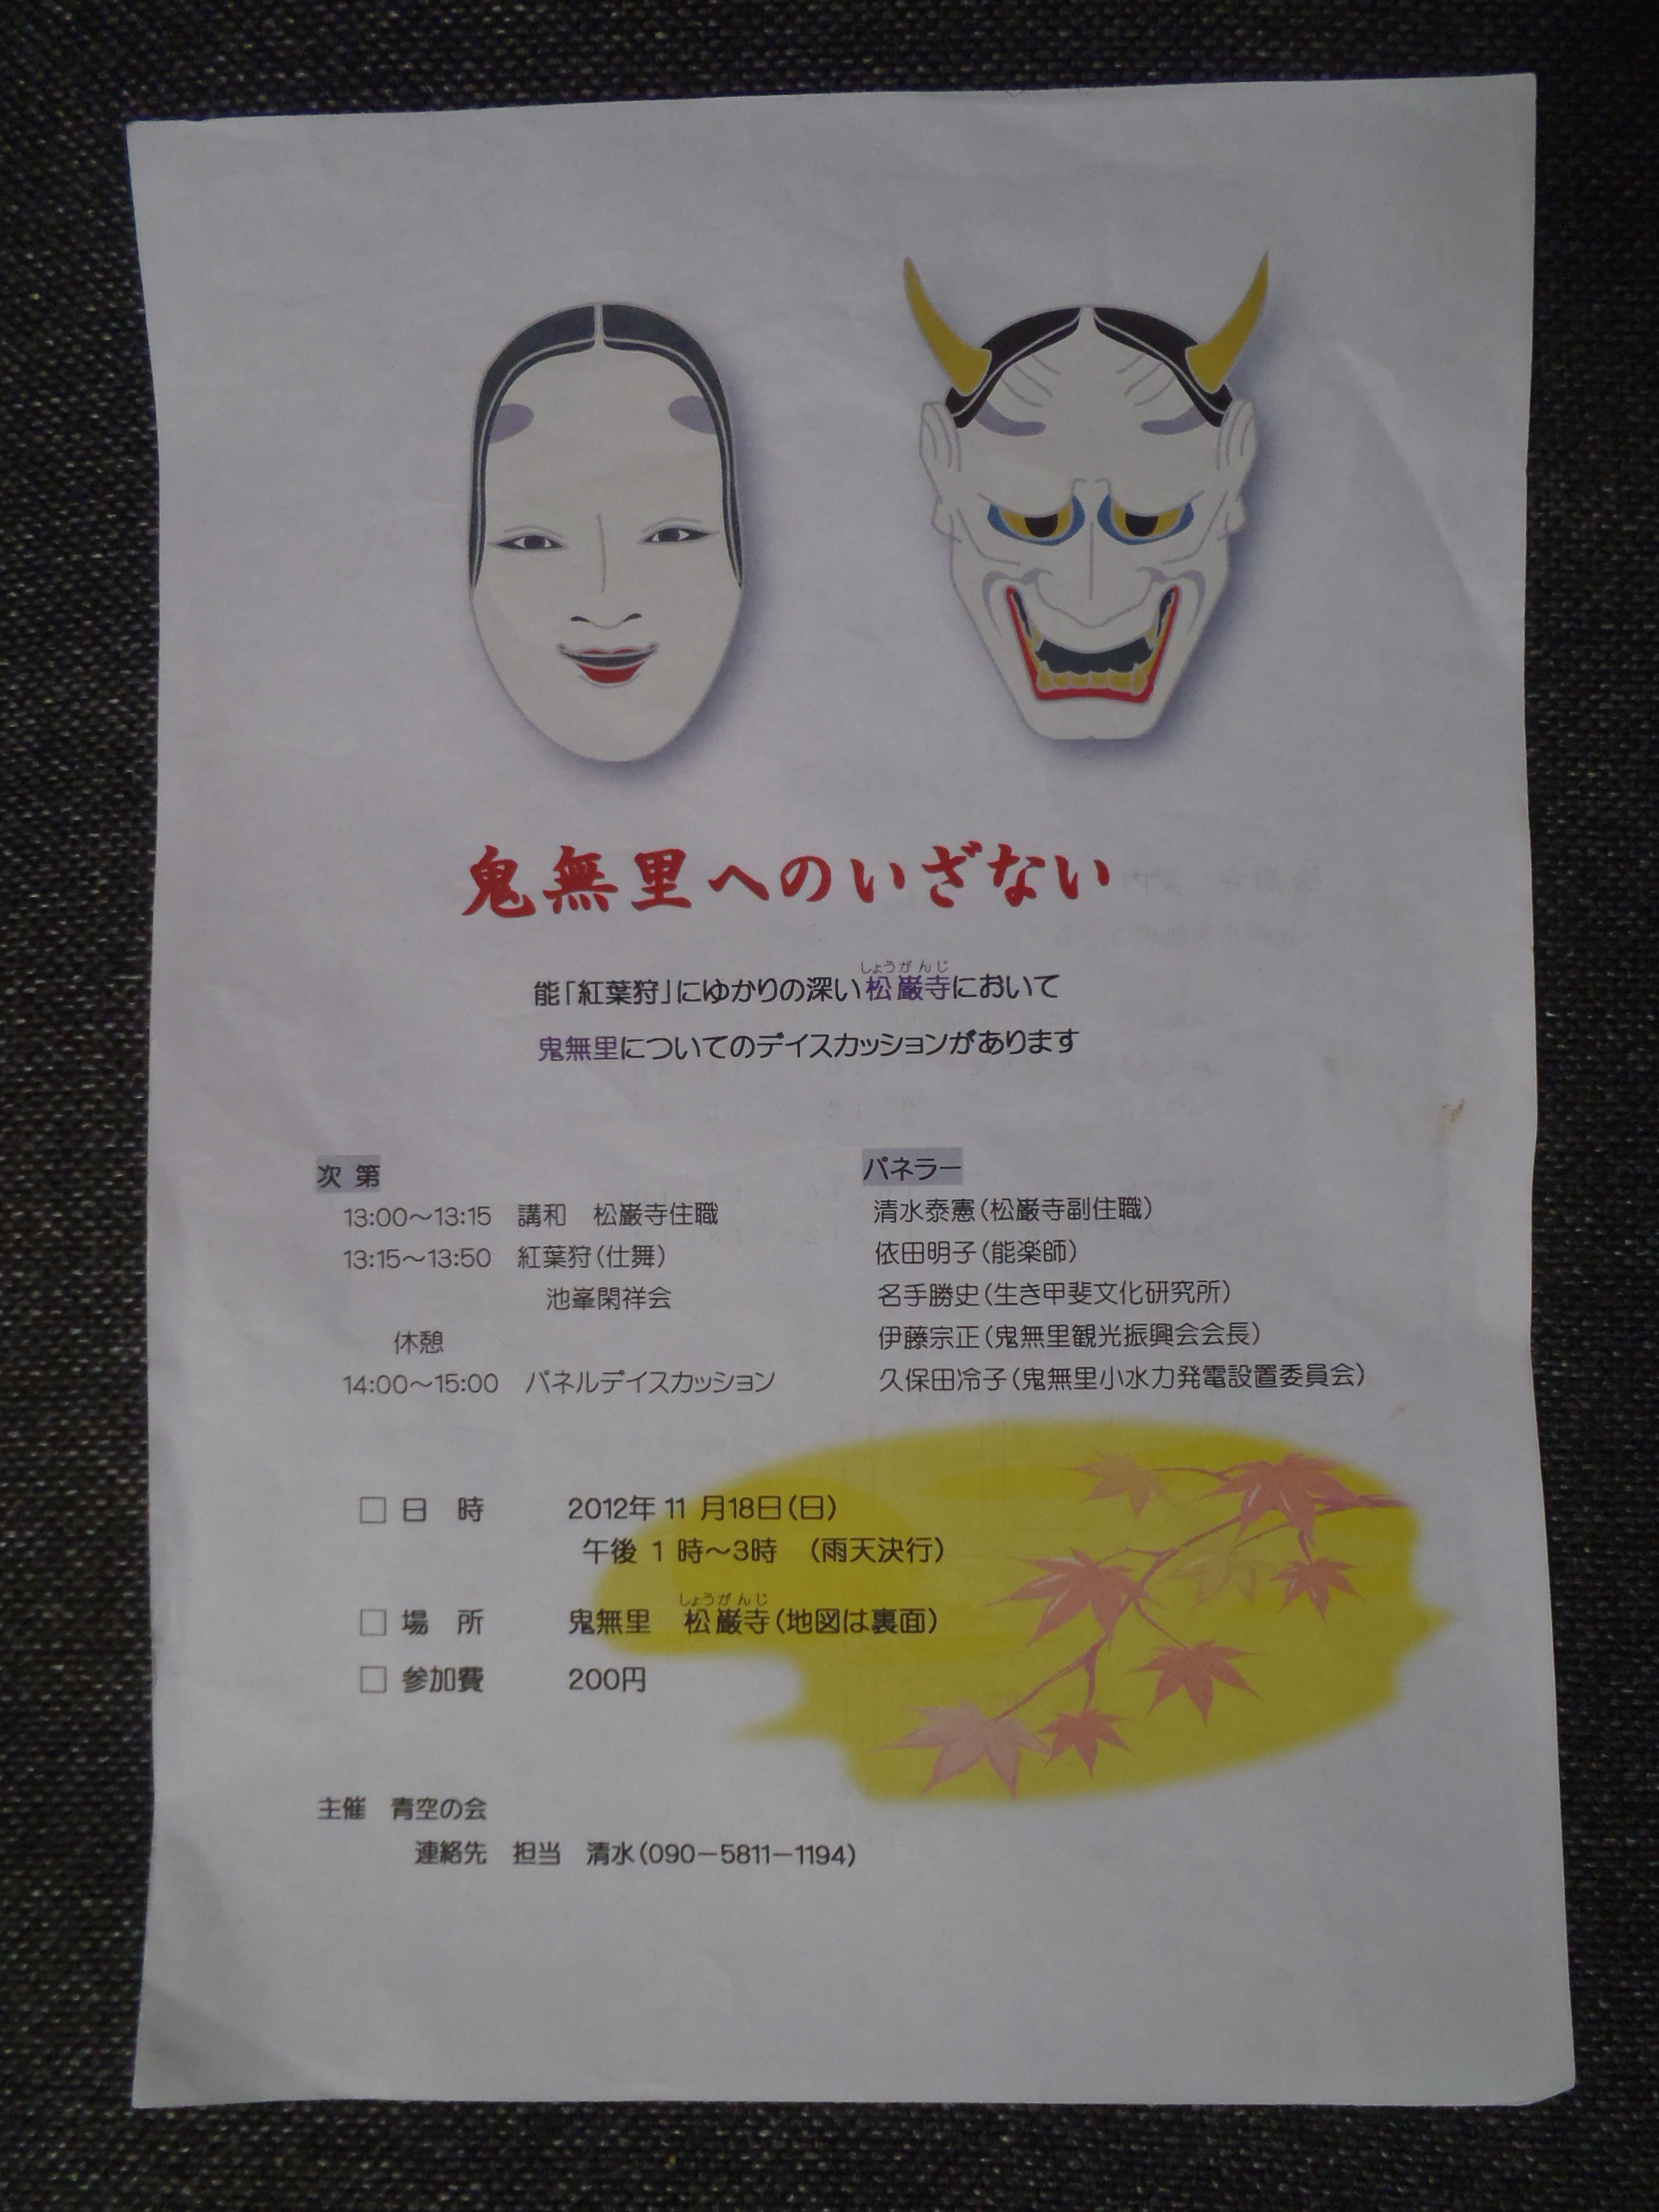 鬼無里へのいざない
能「紅葉狩」にゆかりの深い松巌寺において
しょうがんじ
鬼無里についてのデイスカッションがあります
次 第
13:00～13:15 講和 松巌寺住職
13:15～13:50 紅葉狩(仕舞)
池峯閑祥会
休憩
14:00～15:00 パネルデイスカッション
パネラー
清水泰憲(松巌寺副住職)
依田明子(能楽師)
名手勝史(生き甲斐文化研究所)
伊藤宗正(鬼無里観光振興会会長)
久保田冷子(鬼無里小水力発電設置委員会)
□ 日 時 2012年 11 月18日(日)
午後 1 時～3時 (雨天決行)
□ 場 所 鬼無里 松巌寺(地図は裏面)
しょうがんじ
□ 参加費 200円
主催 青空の会
連絡先 担当 清水(090－5811－1194)